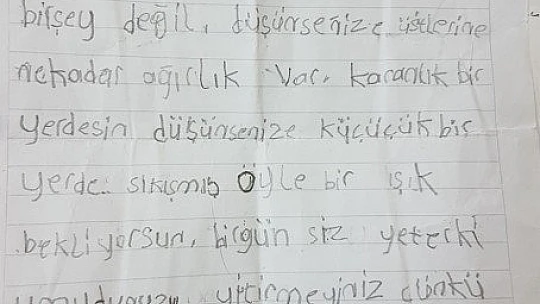 birşey değil, düşünsenize üstlerine
nekadar ağırlık var, karanlık bir
yerdesin düşünsenize küçücük bir
yerde sıkışmış öyle bir ışık
bekliyorsun, birgün siz yeterki
umudunuzu yitirmeyiniz çünkü